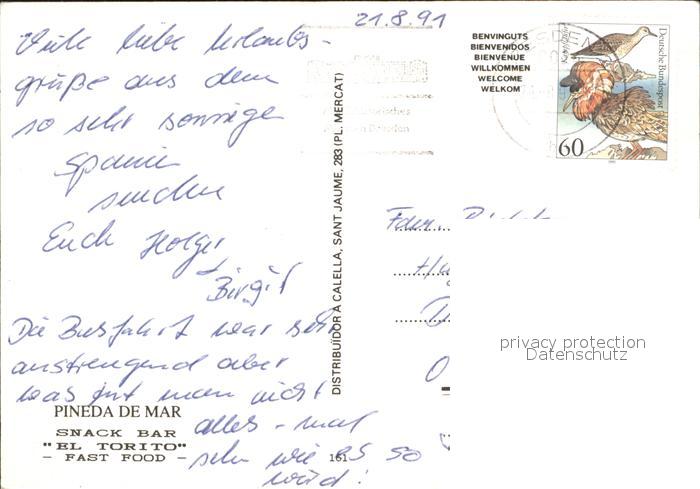 21.8.91
Viele liebe Urlaubs-
grüße aus dem
so sehr sonnigen
Spanien
senden
Euch Holger
+ Birgit
Die Busfahrt war sehr
anstrengend aber
was tut man nicht
alles - mal
sehn wie es so
wird!
PINEDA DE MAR
SNACK BAR
"EL TORITO"
- FAST FOOD -
161
DISTRIBUÏDOR A CALELLA, SANT JAUME, 283 (PL. MERCAT)
BENVINGUTS
BIENVENIDOS
BIENVENUE
WILLKOMMEN
WELCOME
WELKOM
Deutsche Bundespost
60
Fam.
privacy protection
Datenschutz